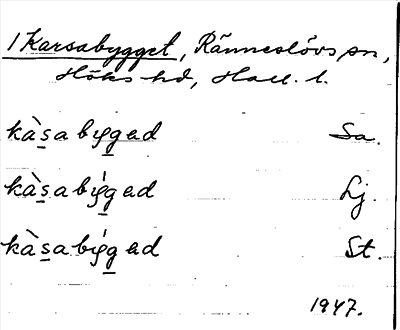 1 Karsabygget, Ränneslövs sn,
Höks hd, Hall. l.
kàs̲a byg̲ad Sa.
kàs̲a býg̲ad Lj.
kàs̲a býg̲ad St.
1947.